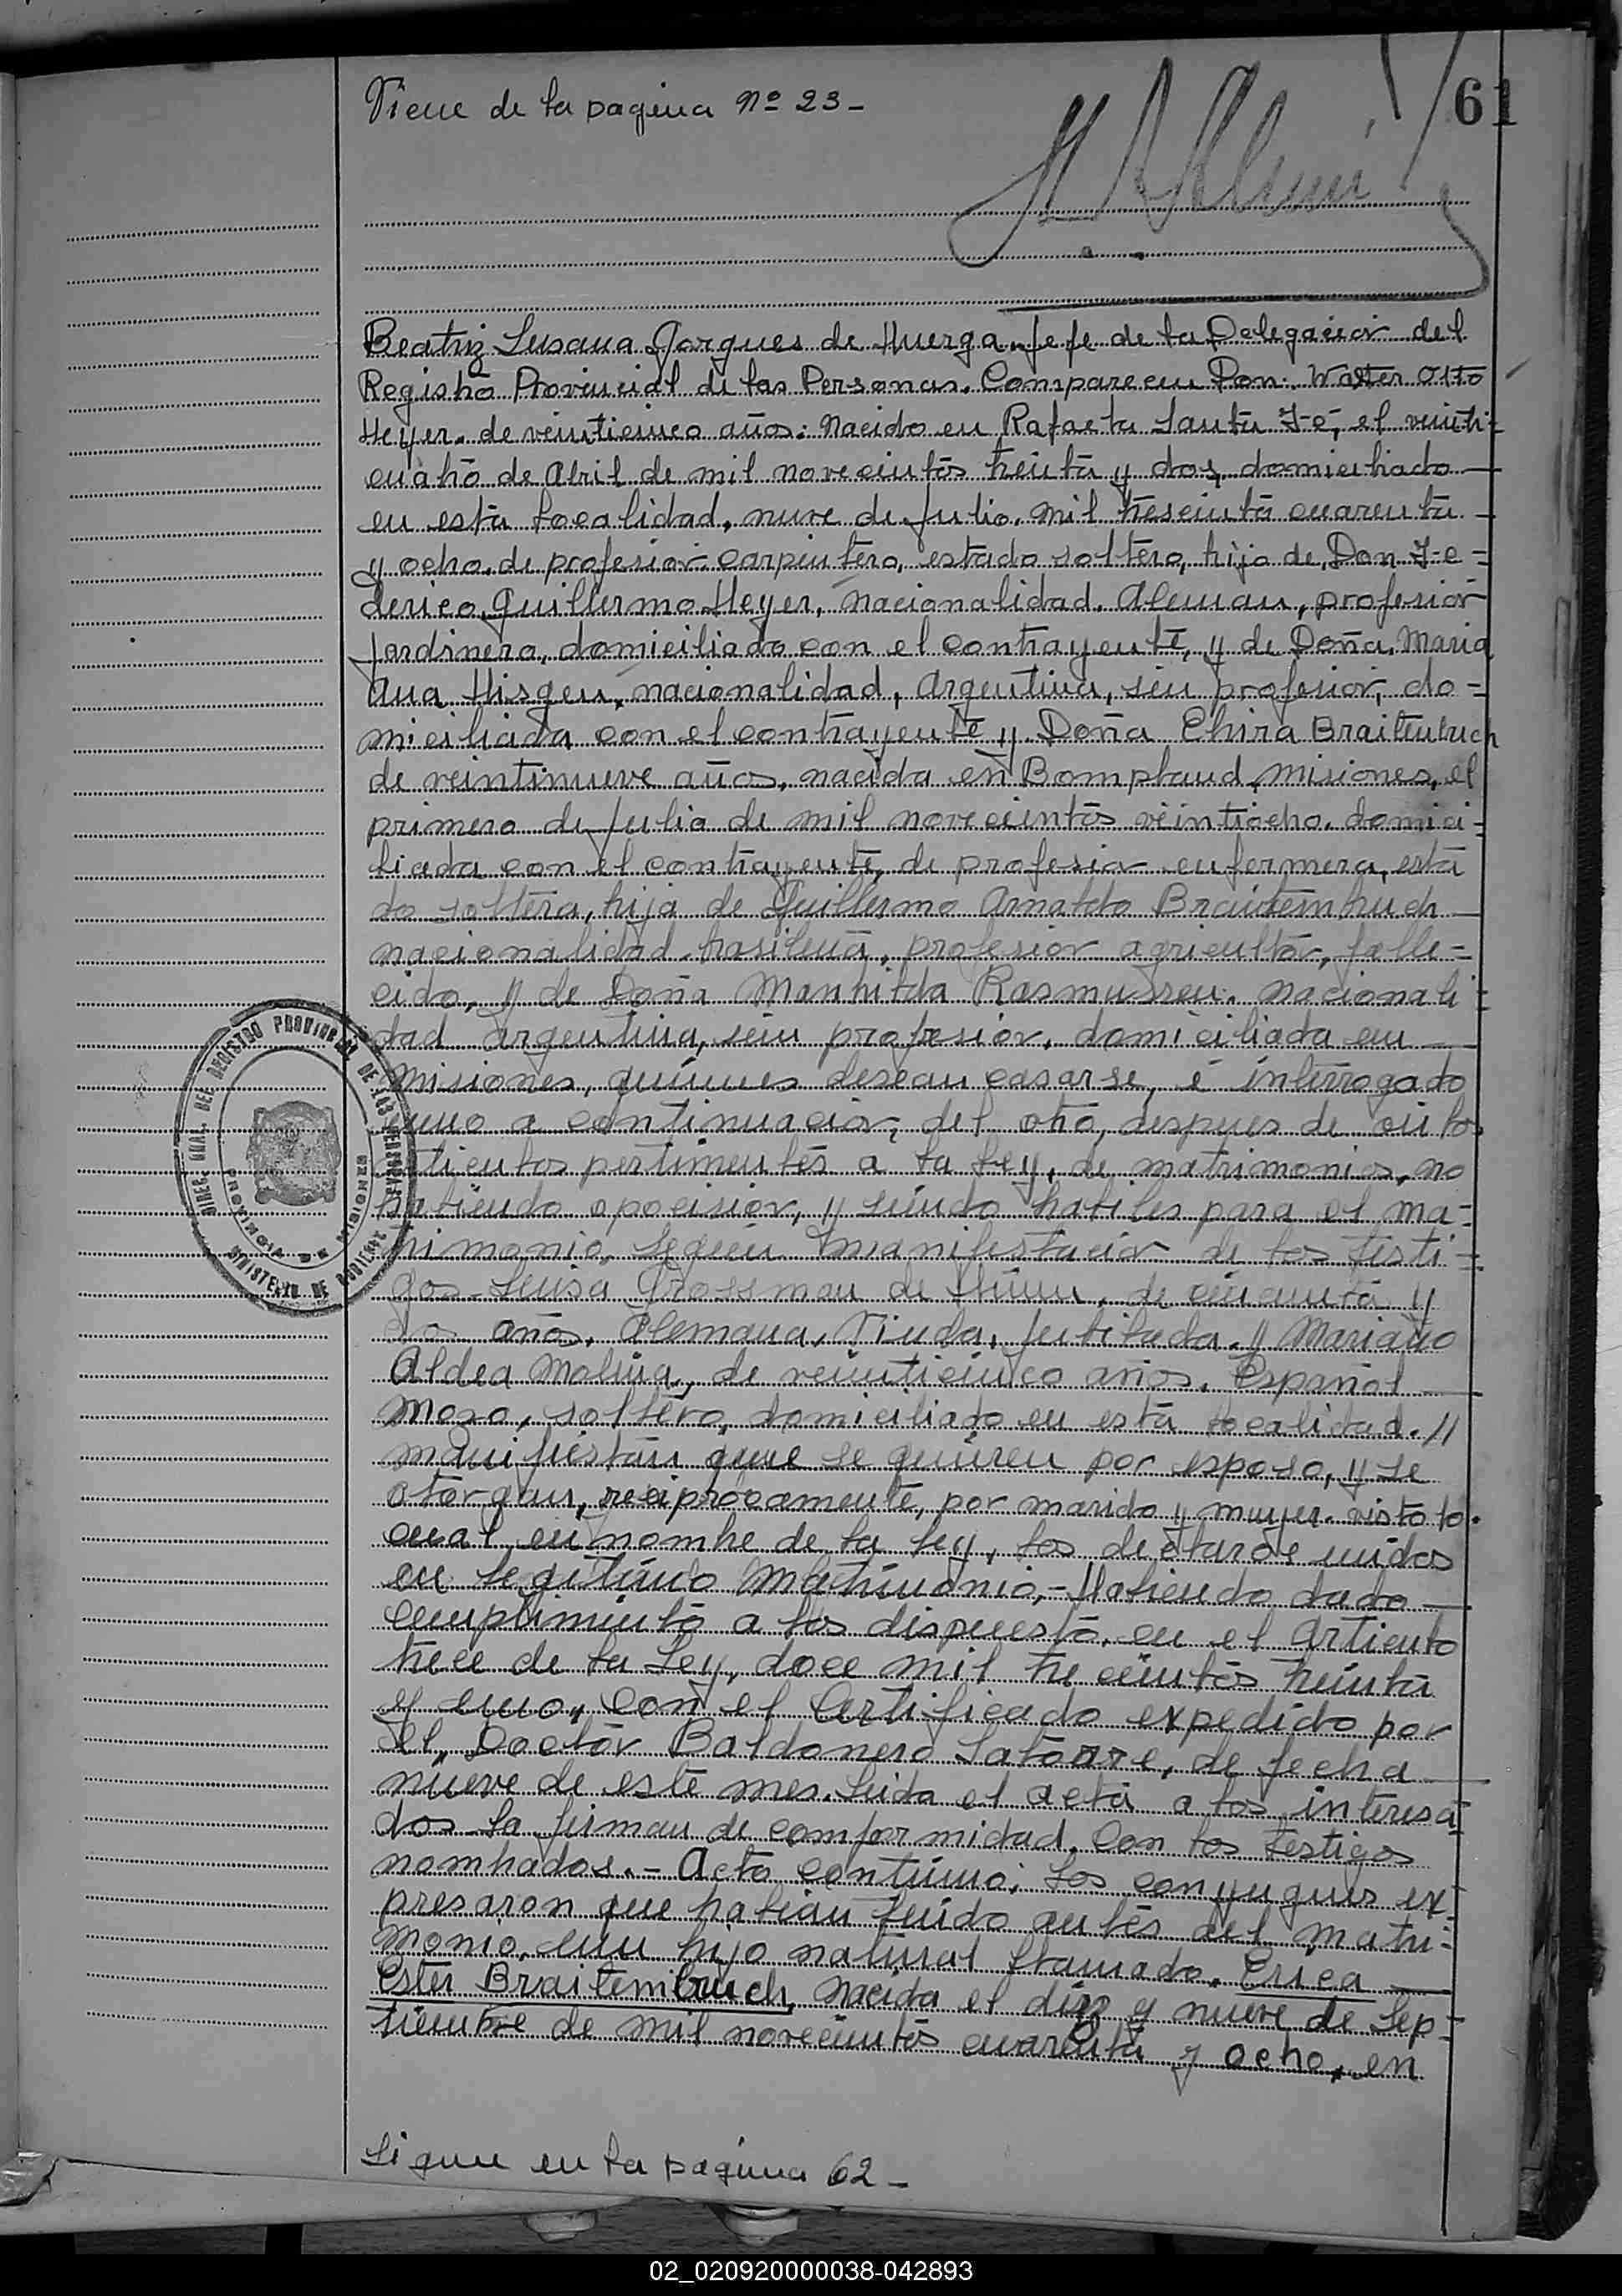 Viene de la pagina Nº 23-
61
Beatriz Susana Jorques de Huerga. Jefe de la Delegación del
Registro Provincial de las Personas. Comparecen Don: Walter Otto
Heyer. de veinticinco años: Nacido en Rafaela Santa Fé, el veinti-
cuatro de Abril de mil novecientos treinta y dos, domiciliado
en esta localidad, nueve de Julio, mil trescientos cuarenta
y ocho, de profesión carpintero, estado soltero, hijo de, Don Fe=
derico Guillermo Heyer, Nacionalidad. Aleman, profesión
Jardinero, domiciliado con el contrayente, y de Doña, Maria
Ana Hisgen, nacionalidad, Argentina, sin profesión, do=
miciliada con el contrayente y Doña Elvira Braitenbruch
de veintinueve años, nacida en Bompland, Misiones, el
primero de Julio de mil novecientos veintiocho, domici-
liada con el contrayente, de profesión enfermera, esta
do soltera, hija de Guillermo Arnaldo Braitembruch
nacionalidad brasilena, profesión agricultor, falle=
cido, y de Doña Manhilda Rasmussen. nacionali=
dad argentina, sin profesión, domiciliada en
Misiones, quienes desean casarse, é interrogado
uno a continuación del otro, despues de oir los
articulos pertinentes a la Ley, de matrimonios, no
habiendo oposición, y siendo habiles para el ma=
trimonio, según manifestación de los testi=
gos- Luisa Grossman de de cincuenta y
dos años, Alemana, Viuda, Jubilada. y Mariano
Aldea Molina, de veinticinco años. Español
Mozo, soltero, domiciliado en esta localidad. y
manifiestan que se quieren por esposo, y se
otorgan, reciprocamente, por marido y mujer. visto lo
cual en nombre de la Ley, los declaroe unidos
en legitimo Matrimonio,- Habiendo dado
cumplimiento a los dispuesto, en el Articulo
trece de la Ley, doce mil trecientos treinta
y uno, con el Certificado expedido por
el, Doctor Baldonero Latorre, de fecha
nueve de este mes. Leida el acta a los interesa
dos la firman de comformidad. Con los testigos
nombrados.- Acto continuo: Los conyugues ex-
presaron que habian tenido antes del matri-
monio, un hijo natural llamado. Erica
Ester Braitembruch, nacida el diez y nueve de Sep-
tiembre de mil novecientos cuarenta y ocho, en
DIREC. GRAL. DEL REGISTRO PROVINCIAL DE LAS PERSONAS
PROVINCIA DE MISIONES
MINISTERIO DE GOBIERNO
Sigue en la pagina 62-
02_020920000038-042893